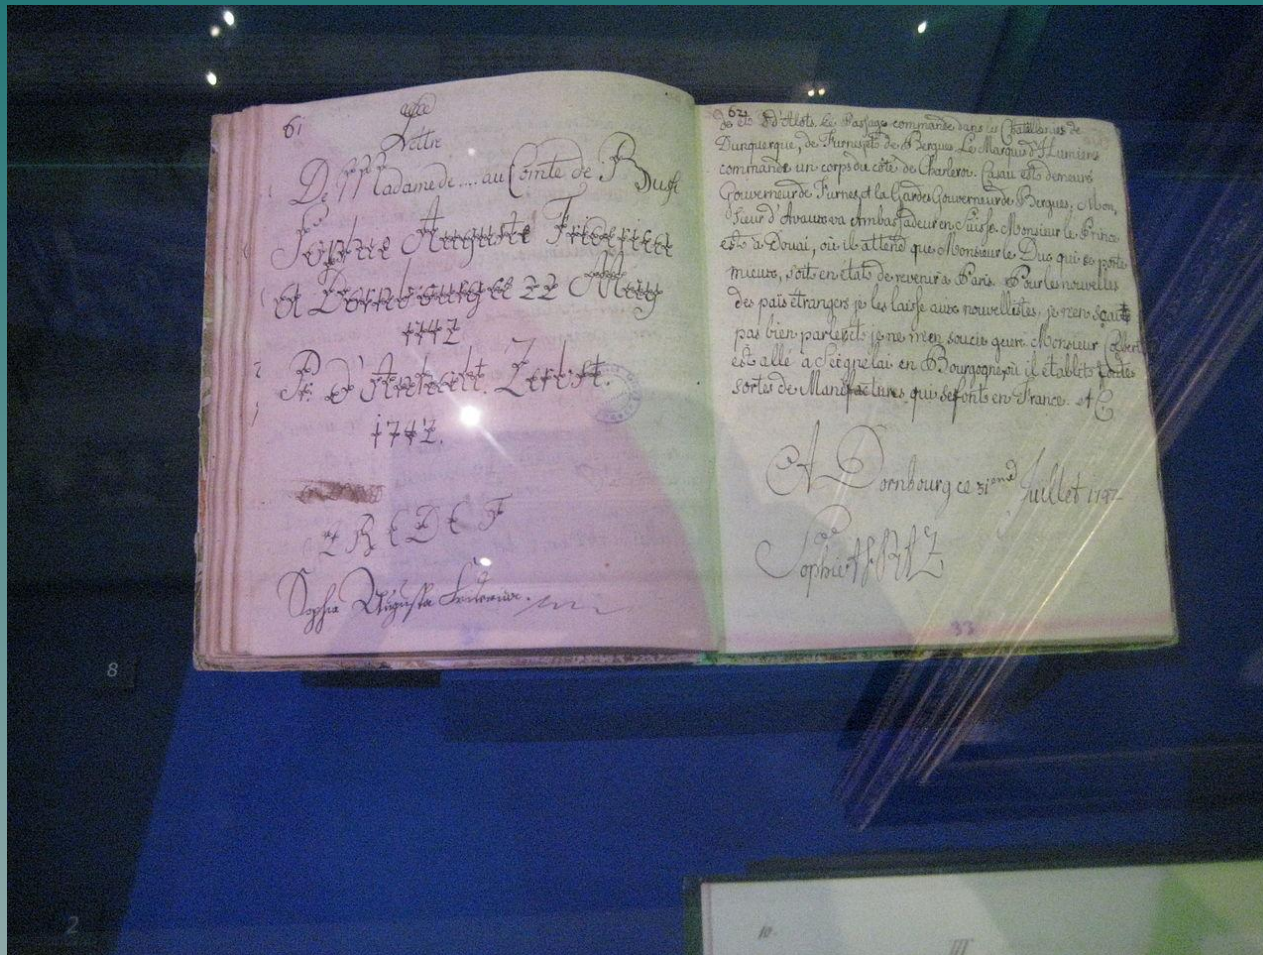 61
Lettre
De Madame de .... au Comte de Bussi
Sophie Auguste Friderica
A Dornbourg ce 22 May
1742
Pr. D'Anhalt. Zerbst.
1742.
Sophia Augusta
62
d'Alots. Le Passage commande dans les Chatellenies de
Dunquerque, de Furnes et de Bergues. Le Marquis d'Humieres
commande un corps du côté de Charleroi. Casau est demeuré
Gouverneur de Furnes et la Garde Gouverneur de Bergues. Mon,
sieur d'Avaux va Ambassadeur en Suisse. Monsieur le Prince
est à Douai, où il attend que Monsieur le Duc qui se porte
mieux, soit en état de revenir à Paris. Pour les nouvelles
des païs étrangers je les laisse aux nouvellistes, je n'en sçait
pas bien parler et je ne m'en soucie geure Monsieur Colbert
est allé à Seignelai en Bourgogne, où il établit toutes
sortes de Manifactures qui se font en France.
A Dornbourg ce 31 eme Juillet 1742
Sophie
33
8
2
10.
III